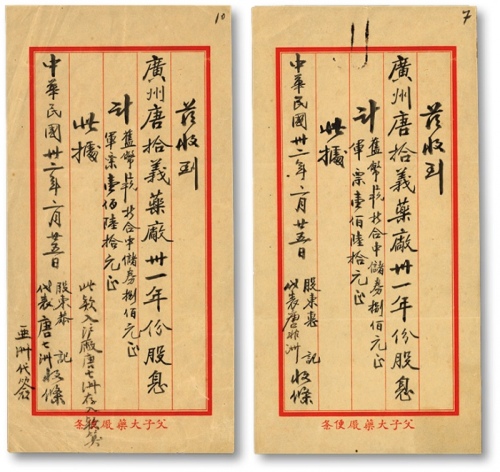 10
茲收到
廣州唐拾義藥廠卅一年份股息
計舊幣 折合中儲券捌佰元正
軍票壹佰陸拾元正
此據
此款入 廠唐七洲存入
中華民國卅二年二月廿五日
股東恭記
代表唐七洲收條
亞洲代
父子大藥廠便条
7
茲收到
廣州唐拾義藥廠卅一年份股息
計舊幣 折合中儲券捌佰元正
軍票壹佰陸拾元正
此據
中華民國卅二年二月廿五日
股東惠記
代表唐非洲收條
父子大藥廠便条